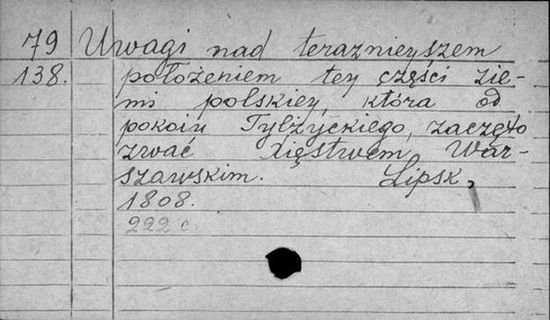 79 Uwagi nad teraznieyszem
138. położeniem tey części zie-
mi polskiey, która od
pokoiu Tylżyckiego, zaczęto
zwać Xięstwem War-
szawskim. Lipsk,
1808.
222 c.